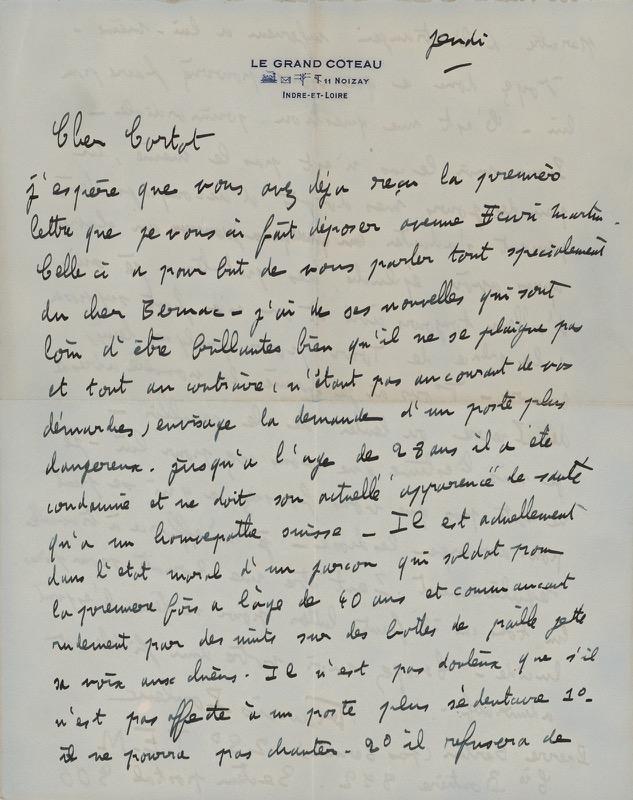 Jeudi
LE GRAND COTEAU
T. 11 NOIZAY
INDRE-ET-LOIRE
Cher Cortot
j'espère que vous avez déja reçu la première
lettre que je vous ai fait déposer avenue Henri Martin.
Celle ci a pour but de vous parler tout specialement
du cher Bernac – j'ai de ses nouvelles qui sont
loin d'être brillantes bien qu'il ne se plaigne pas
et tout au contraire, n'étant pas au courant de vos
démarches, envisage la demande d'un poste plus
dangereux. Jusqu'a l'age de 28 ans il a été
condamné et ne doit son actuelle "apparence" de santé
qu'a un homeopathe suisse – Il est actuellement
dans l'etat moral d'un garçon qui soldat pour
la premiere fois a l'âge de 40 ans et commançant
rudement par des nuits sur des bottes de paille jette
sa voix aux chiens. Il n'est pas douteux que s'il
n'est pas affecté à un poste plus sédentaire 1º-
il ne pourra pas chanter. 2º il refusera de